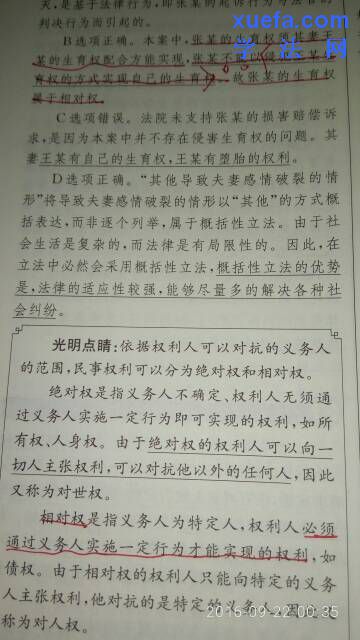 xuefa.com
学法网
灭,是基于法律行为,即张某的起诉行为与法官的
判决行为而引起的。
B选项正确。本案中,张某的生育权须其妻王
某的生育权配合方能实现,张某不能以侵犯王某生
育权的方式实现自己的生育权。故张某的生育权
属于相对权。
C选项错误。法院未支持张某的损害赔偿诉
求,是因为本案中并不存在侵害生育权的问题。其
妻王某有自己的生育权,王某有堕胎的权利。
D选项正确。“其他导致夫妻感情破裂的情
形”将导致夫妻感情破裂的情形以“其他”的方式概
括表达,而非逐个列举,属于概括性立法。由于社
会生活是复杂的,而法律是有局限性的。因此,在
立法中必然会采用概括性立法,概括性立法的优势
是,法律的适应性较强,能够尽量多的解决各种社
会纠纷。
光明点睛:依据权利人可以对抗的义务人
的范围,民事权利可以分为绝对权和相对权。
绝对权是指义务人不确定、权利人无须通
过义务人实施一定行为即可实现的权利,如所
有权、人身权。由于绝对权的权利人可以向一
切人主张权利,可以对抗他以外的任何人,因此
又称为对世权。
相对权是指义务人为特定人,权利人必须
通过义务人实施一定行为才能实现的权利,如
债权。由于相对权的权利人只能向特定的义务
人主张权利,他对抗的是特定的义务人,因此又
称为对人权。
2016-09-22 00:35